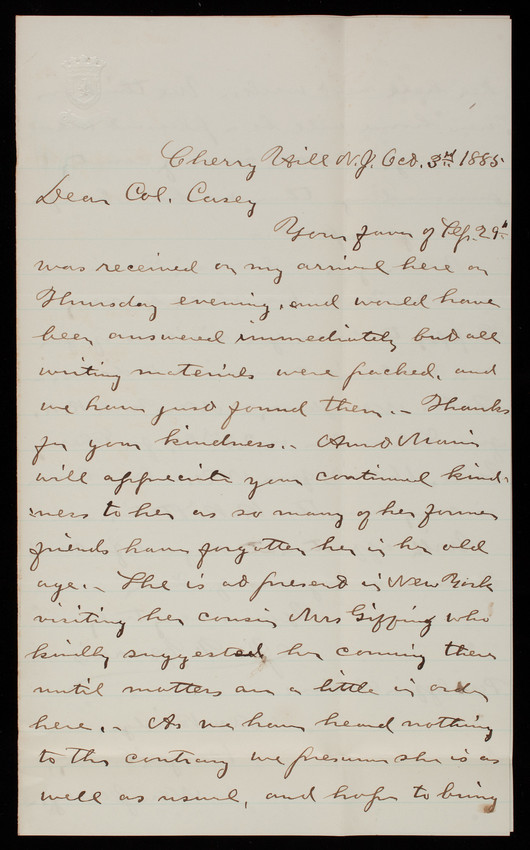 Cherry Hill N.J. Oct. 3rd 1885
Dear Col. Casey
Your favor of Sep. 29th
was received on my arrival here on
Thursday evening, and would have
been answered immediately but all
writing materials were packed, and
we have just found them. – Thanks
for your kindness. – Aunt Maria
will appreciate your continued kind-
ness to her as so many of her former
friends have forgotten her in her old
age. – She is at present in New York
visiting her cousin Mrs Giffing who
kindly suggested her coming there
until matters are a little in order
here. – As we have heard nothing
to the contrary we presume she is as
well as usual, and hope to bring